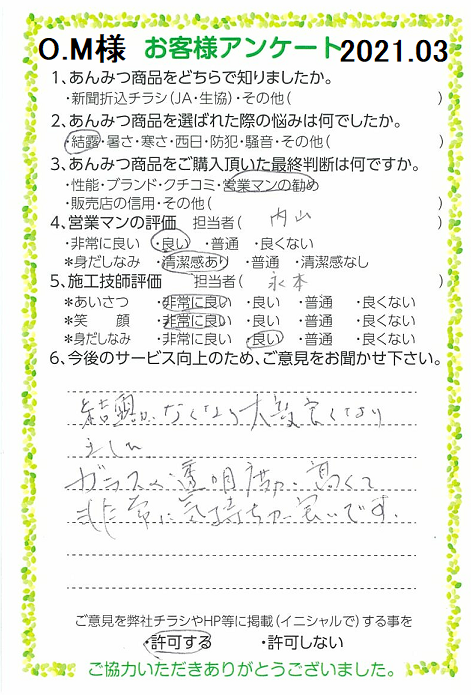 O.M様 お客様アンケート 2021.03
1、あんみつ商品をどちらで知りましたか。
・新聞折込チラシ(JA・生協)・その他( )
2、あんみつ商品を選ばれた際の悩みは何でしたか。
・結露・暑さ・寒さ・西日・防犯・騒音・その他( )
3、あんみつ商品をご購入頂いた最終判断は何ですか。
・性能・ブランド・クチコミ・営業マンの勧め
・販売店の信用・その他( )
4、営業マンの評価 担当者( 内山 )
・非常に良い ・良い ・普通 ・良くない
*身だしなみ ・清潔感あり ・普通 ・清潔感なし
5、施工技師評価 担当者( 永本 )
*あいさつ ・非常に良い ・良い ・普通 ・良くない
*笑 顔 ・非常に良い ・良い ・普通 ・良くない
*身だしなみ ・非常に良い ・良い ・普通 ・良くない
6、今後のサービス向上のため、ご意見をお聞かせ下さい。
結露が、なくなり大変良くなり
ました
ガラスの透明度が高くて
非常に気持ちが良いです。
ご意見を弊社チラシやHP等に掲載(イニシャルで)する事を
・許可する ・許可しない
ご協力いただきありがとうございました。